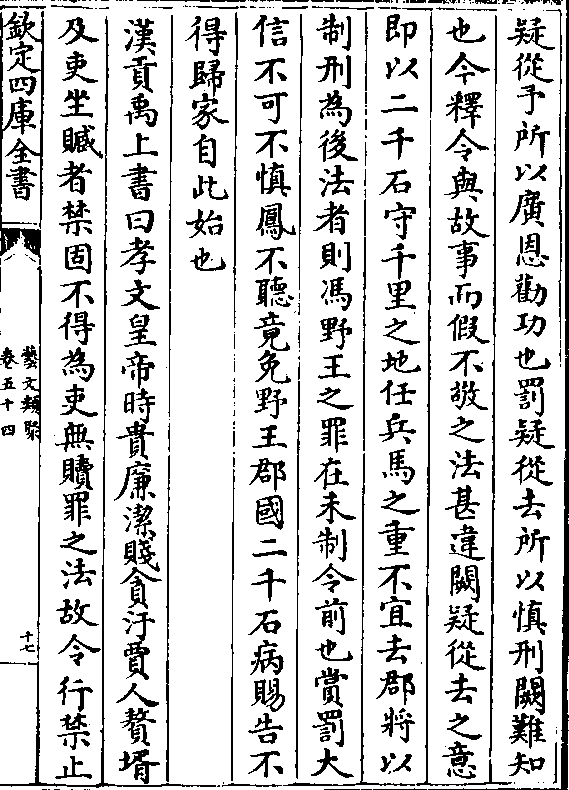 疑從予所以廣恩勸功也罰疑從去所以慎刑闕難知
也今釋令與故事而假不敬之法甚違闕疑從去之意
即以二千石守千里之地任兵馬之重不宜去郡將以
制刑為後法者則馮野王之罪在未制令前也賞罰大
信不可不慎鳳不聽竟免野王郡國二千石病賜告不
得歸家自此始也
漢貢禹上書曰孝文皇帝時貴廉潔賤貪汙賈人贅壻
及吏坐贓者禁固不得為吏無贖罪之法故令行禁止
欽定四庫全書
藝文類聚
卷五十四
十七